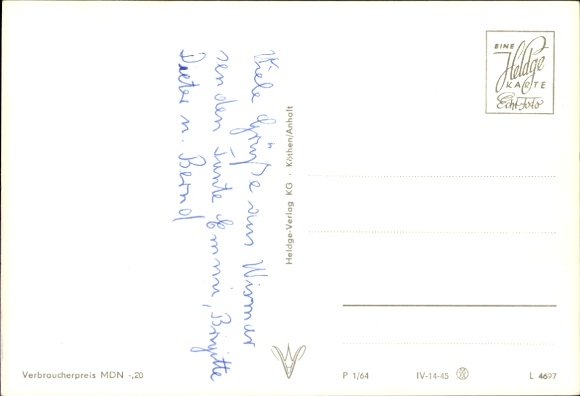 Viele Grüße aus Wismar
senden Tante Emmi, Brigitte
Dieter u. Bernd
Heldge-Verlag KG · Köthen/Anhalt
EINE
Heldge
KARTE
Echt-Foto
Verbraucherpreis MDN -,20
P 1/64
IV-14-45
L 4697